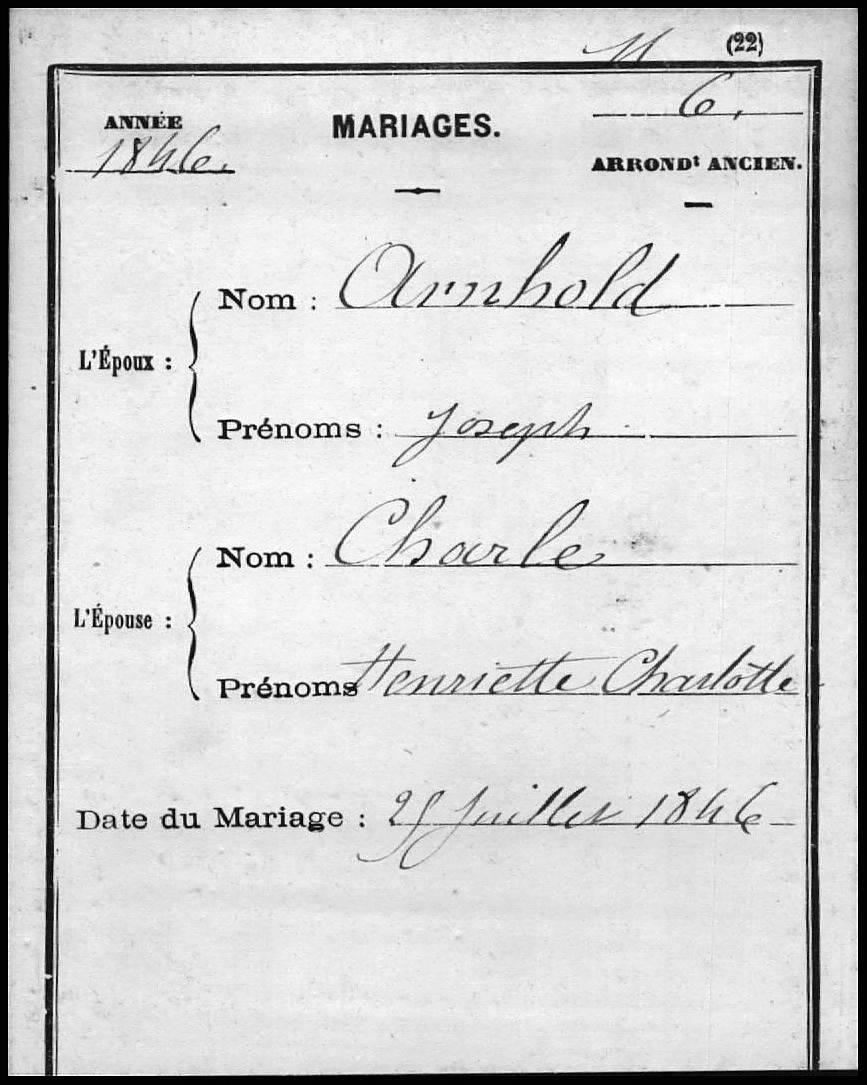 (22)
6.
ANNÉE
1846.
MARIAGES.
ARRONDt ANCIEN.
L'Époux :
Nom : Arnhold
Prénoms : Joseph
L'Épouse :
Nom : Charle
Prénoms Henriette Charlotte
Date du Mariage : Juillet 1846